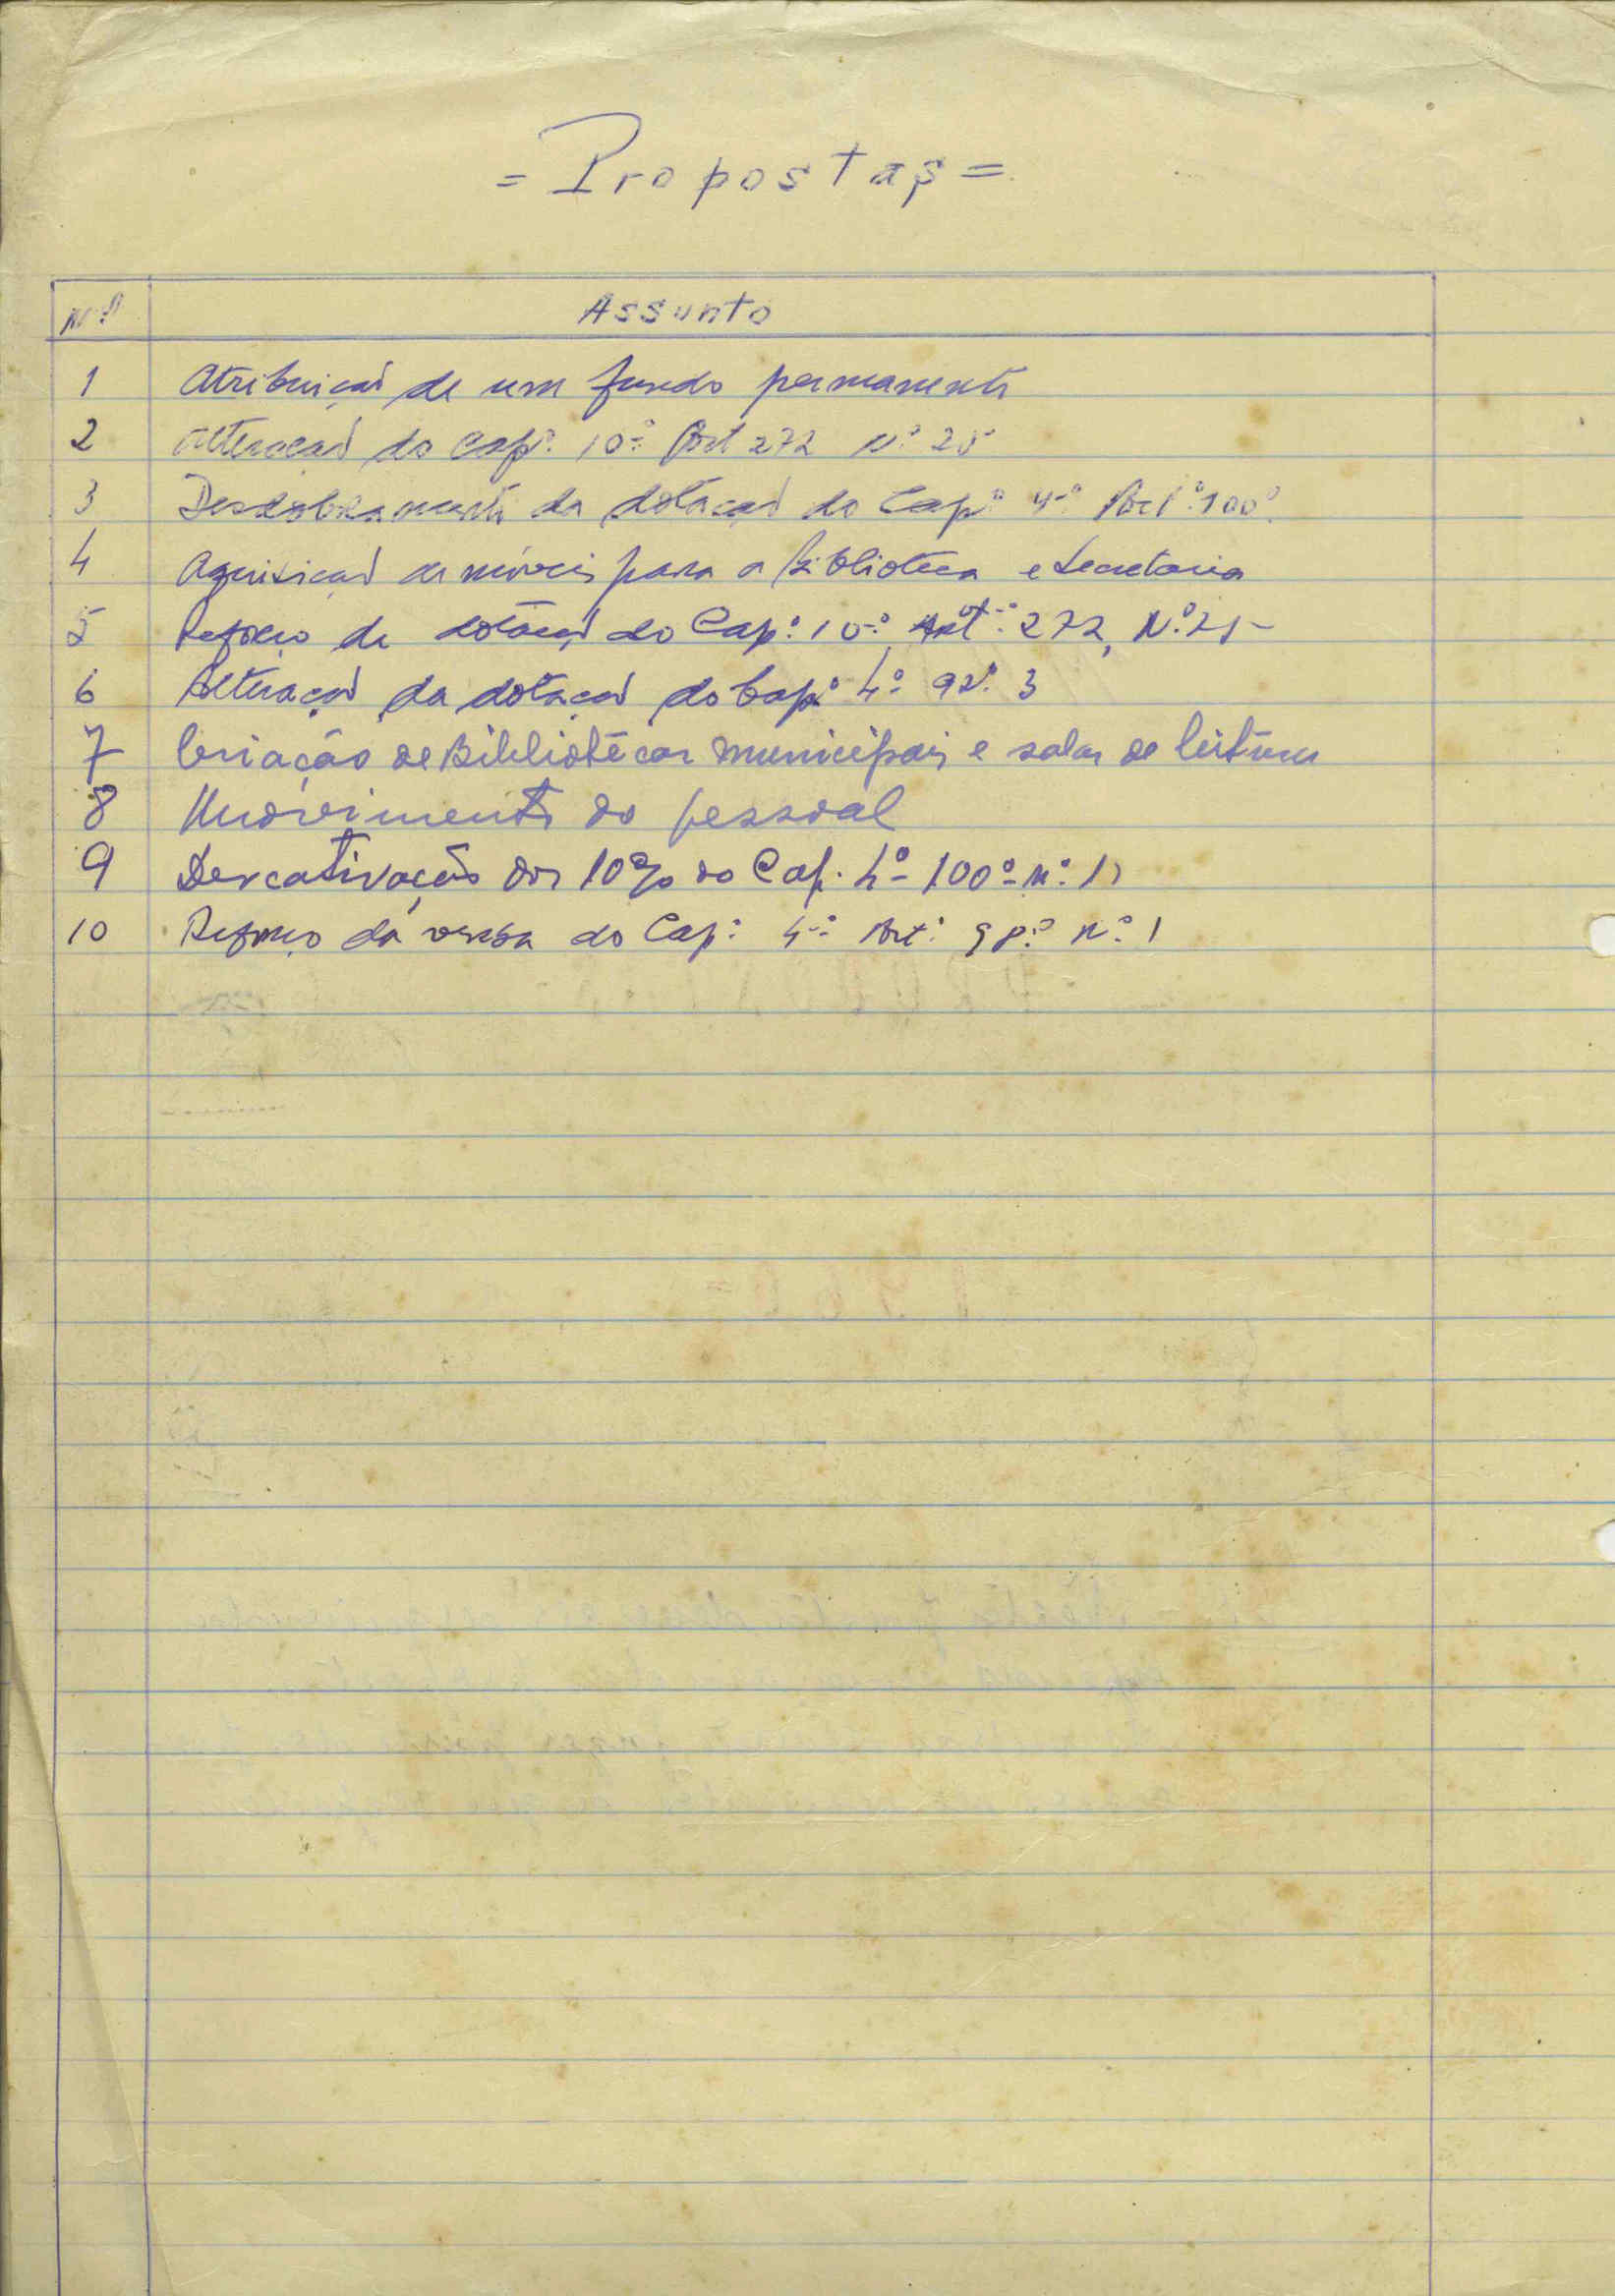 = Propostas =
Nº Assunto
1 Atribuição de um fundo permanente
2 Alteração do Capº. 10º Art 272 Nº 25
3 Desdobramento da dotação do Capº 4º Artº 100º
4 Aquisição de móveis para a Biblioteca e Secretaria
5 Reforço da dotação do Capº. 10º, Artº. 272, Nº. 25
6 Alteração da dotação do Capº 4º 92º. 3
7 Criação de Bibliotécas Municipais e salas de leitura
8 Movimento do pessoal
9 Descativação dos 10% do Cap. 4º 100º nº. 1
10 Reforço da verba do Capº 4º Artº 98º nº 1